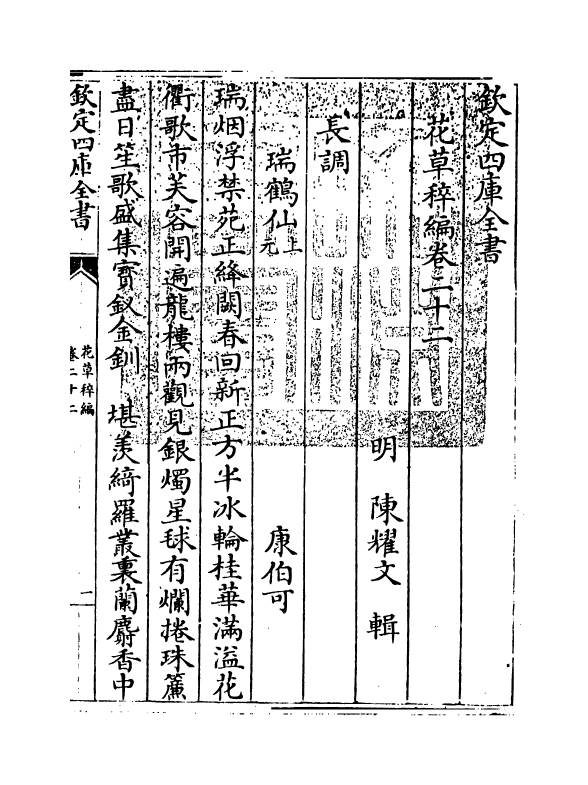 欽定四庫全書
花草稡編卷二十二
明　陳耀文　輯
長調
瑞鶴仙上元　康伯可
瑞烟浮禁苑正絳闕春回新正方半冰輪桂華滿溢花
衢歌市芙容開遍龍樓兩觀見銀燭星毬有爛捲珠簾
盡日笙歌盛集寳釵金釧　堪羨綺羅叢裏蘭麝香中
欽定四庫全書
花草稡編
卷二十二
一